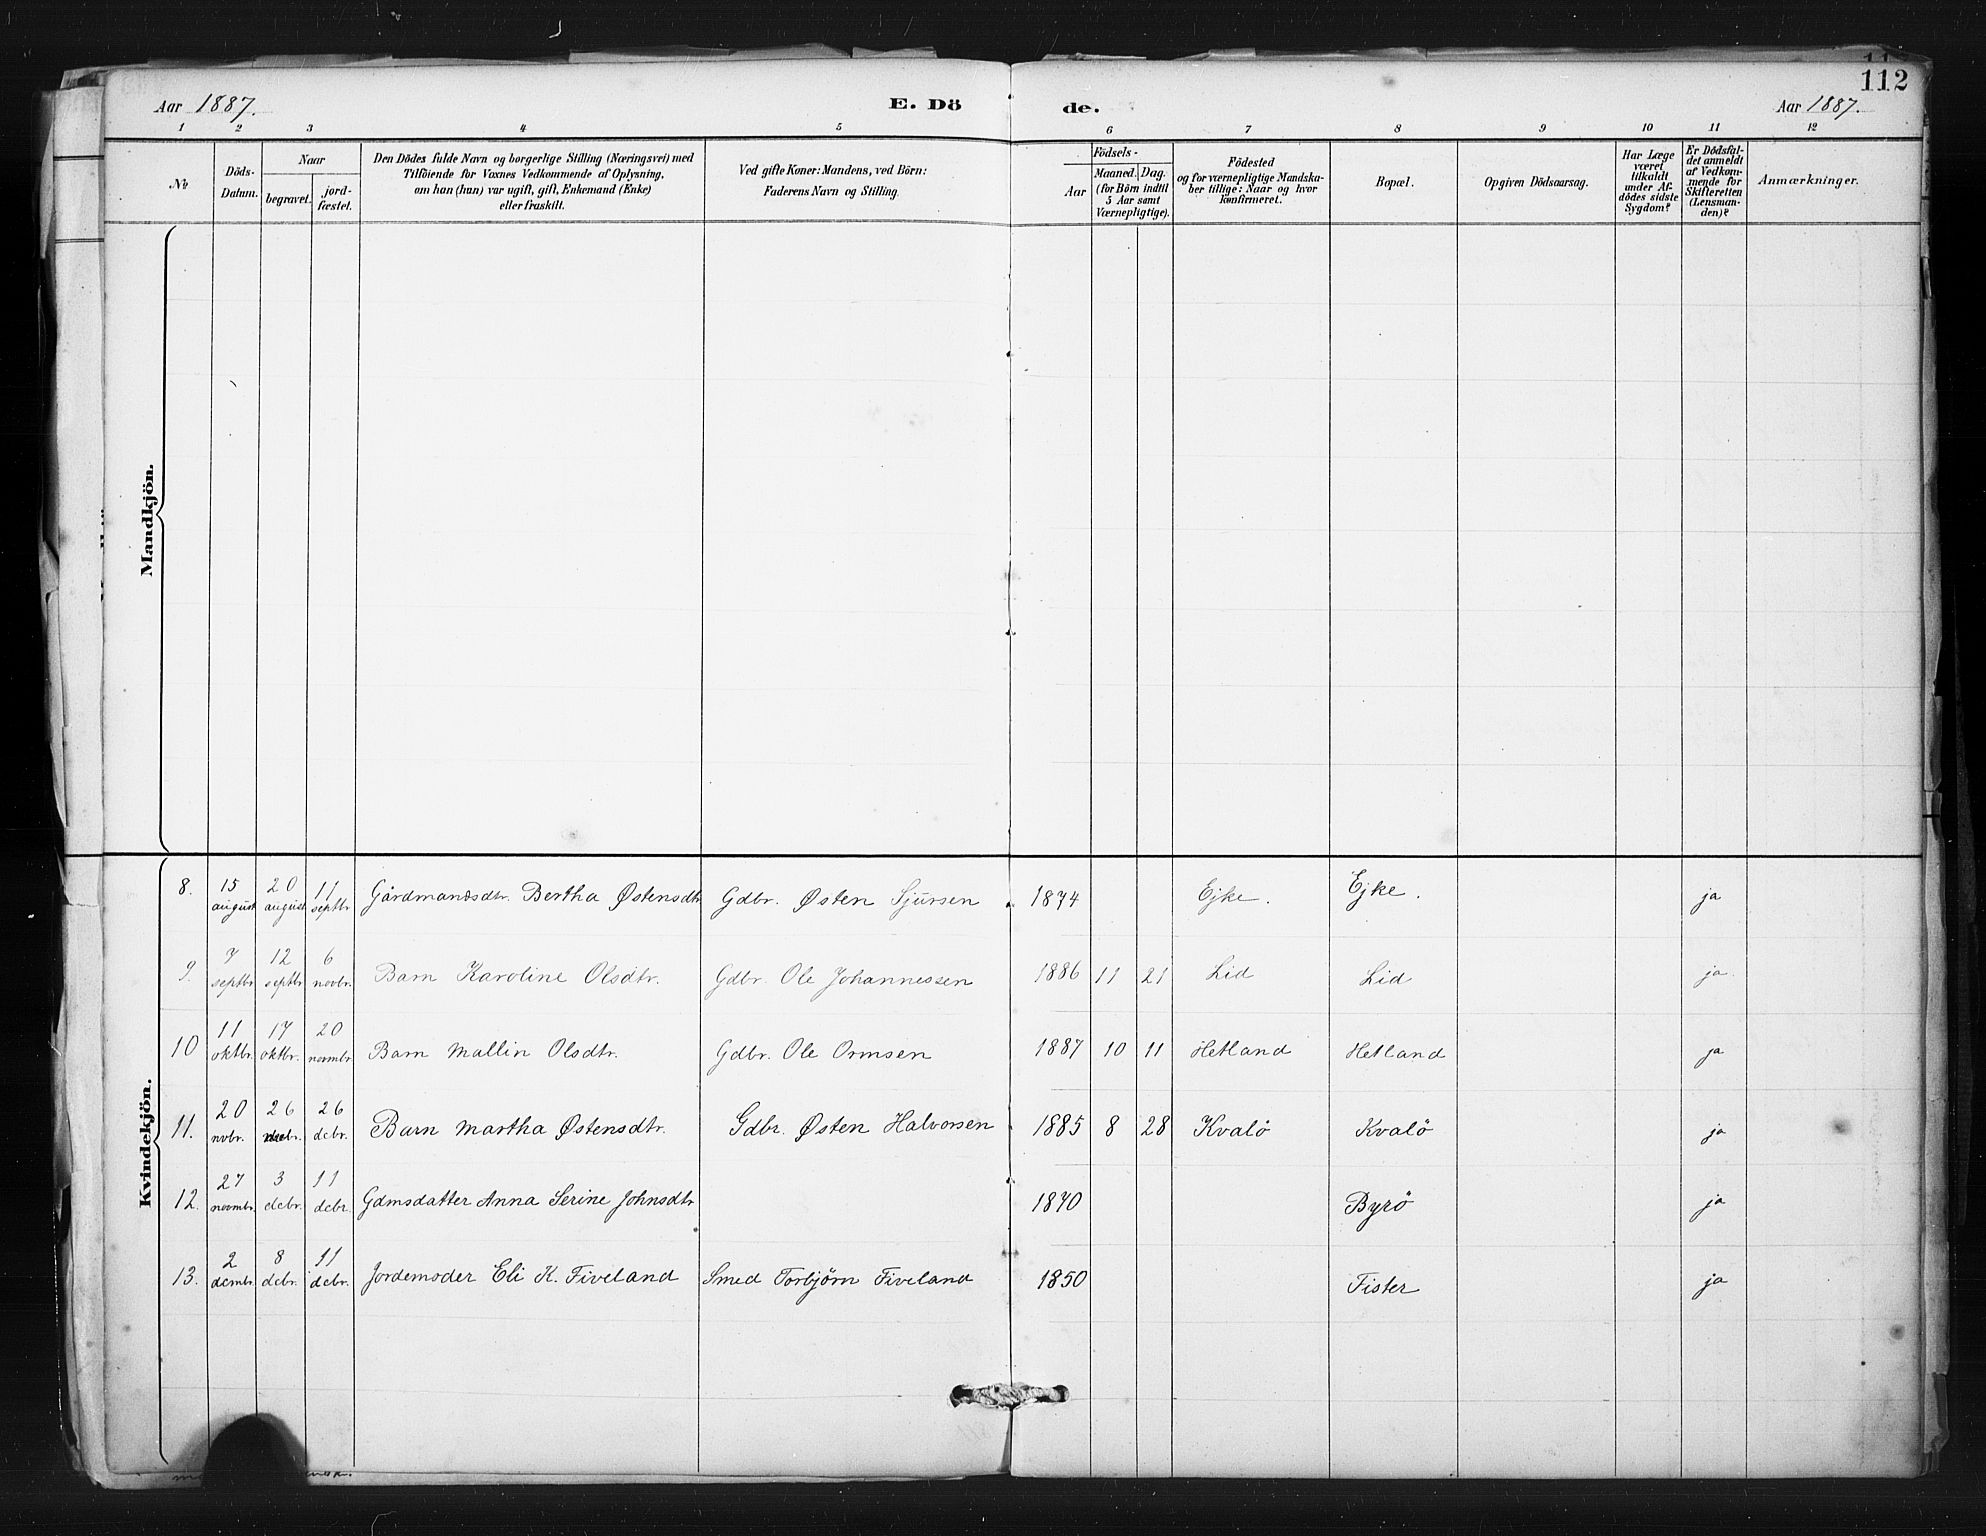 112
Aar 1887.
E. Dö
de.
Aar 1887.
1 2 3 4 5 6 7 8 9 10 11 12
No
Döds-
Datum.
Naar
begravet.
jord-
fæstet.
Den Dödes fulde Navn og borgerlige Stilling (Næringsvei) med
Tilföiende for Voxnes Vedkommende af Oplysning,
om han (hun) var ugift, gift, Enkemand (Enke)
eller fraskilt.
Ved gifte Koner: Mandens, ved Börn:
Faderens Navn og Stilling.
Födsels-
Aar
Maaned. Dag.
(for Börn indtil
5 Aar samt
Værnepligtige).
Födested
og for værnepligtige Mandska-
ber tillige: Naar og hvor
konfirmeret.
Bopæl.
Opgiven Dödsaarsag.
Har Læge
været
tilkaldt
under Af-
dödes sidste
Sygdom?
Er Dödsfal-
det anmeldt
af Vedkom-
mende for
Skifteretten
(Lensman-
den)?
Anmærkninger.
Mandkjön.
Kvindekjön.
8. 15 august 20 august 11 septbr Gårdmandsdtr. Bertha Østensdtr Gdbr. Østen Sjursen 1874 Ejke. Ejke. ja
9. 7 septbr 12 septbr 6 novbr. Barn Karoline Olsdtr. Gdbr. Ole Johannessen 1886 11 21 Lid Lid ja.
10 11 oktbr. 17 oktbr. 20 novmbr. Barn Mallin Olsdtr. Gdbr. Ole Ormsen 1887 10 11 Hetland Hetland ja
11. 20 nvbr. 26 26 dcbr. Barn Martha Østensdtr. Gdbr. Østen Halvorsen 1885 8 28 Kvalö Kvalö ja
12. 27 novmbr. 3 dcbr. 11 dcbr. Gdmsdatter Anna Serine Johnsdtr 1870 Byrö ja
13. 2 dcmbr. 8 dcbr. 11 dcbr. Jordemoder Eli K. Fiveland Smed Torbjörn Fiveland 1850 Fister ja